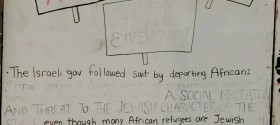 • The Israeli gov followed suit by deporting Africans
A SOCIAL IRRITATION
AND THREAT TO THE JEWISH CHARACTER OF THE
even though many African refugees are Jewish